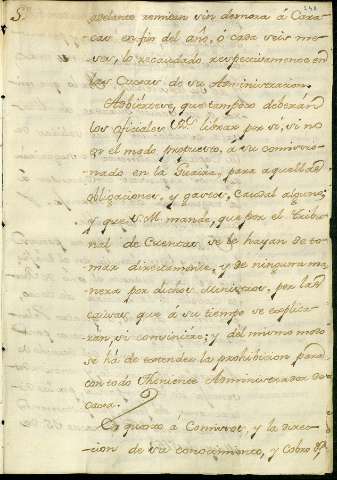 adelante remitan sin demora á Cara
cas en fin del año, ó cada seis me
ses, lo recaudado respectivamente en
las Caxas de su Administracion.
Adviertese, que tampoco deberán
los oficiales Rs. librar por sí, si no
en el modo propuesto, á su comisio
nado en la Guaira, para aquellas
obligaciones, y gastos, Caudal alguno;
y que S. M. mande, que por el Tribu
nal de Cuentas se le hayan de to
mar directamente, y de ninguna ma
nera por dichos Ministros, por las
causas, que á su tiempo se explica
rán, si conviniere; y del mismo modo
se há de entender la prohibicion para
con todo Theniente Administrador de
caxa.
En quanto á Comisos, y la direc
cion de su conocimiento, y Cobro